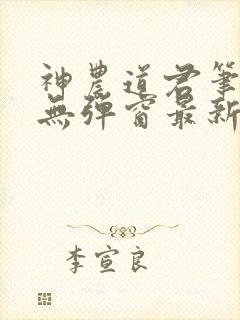 神農道君筆
無彈窗最新
李宣良